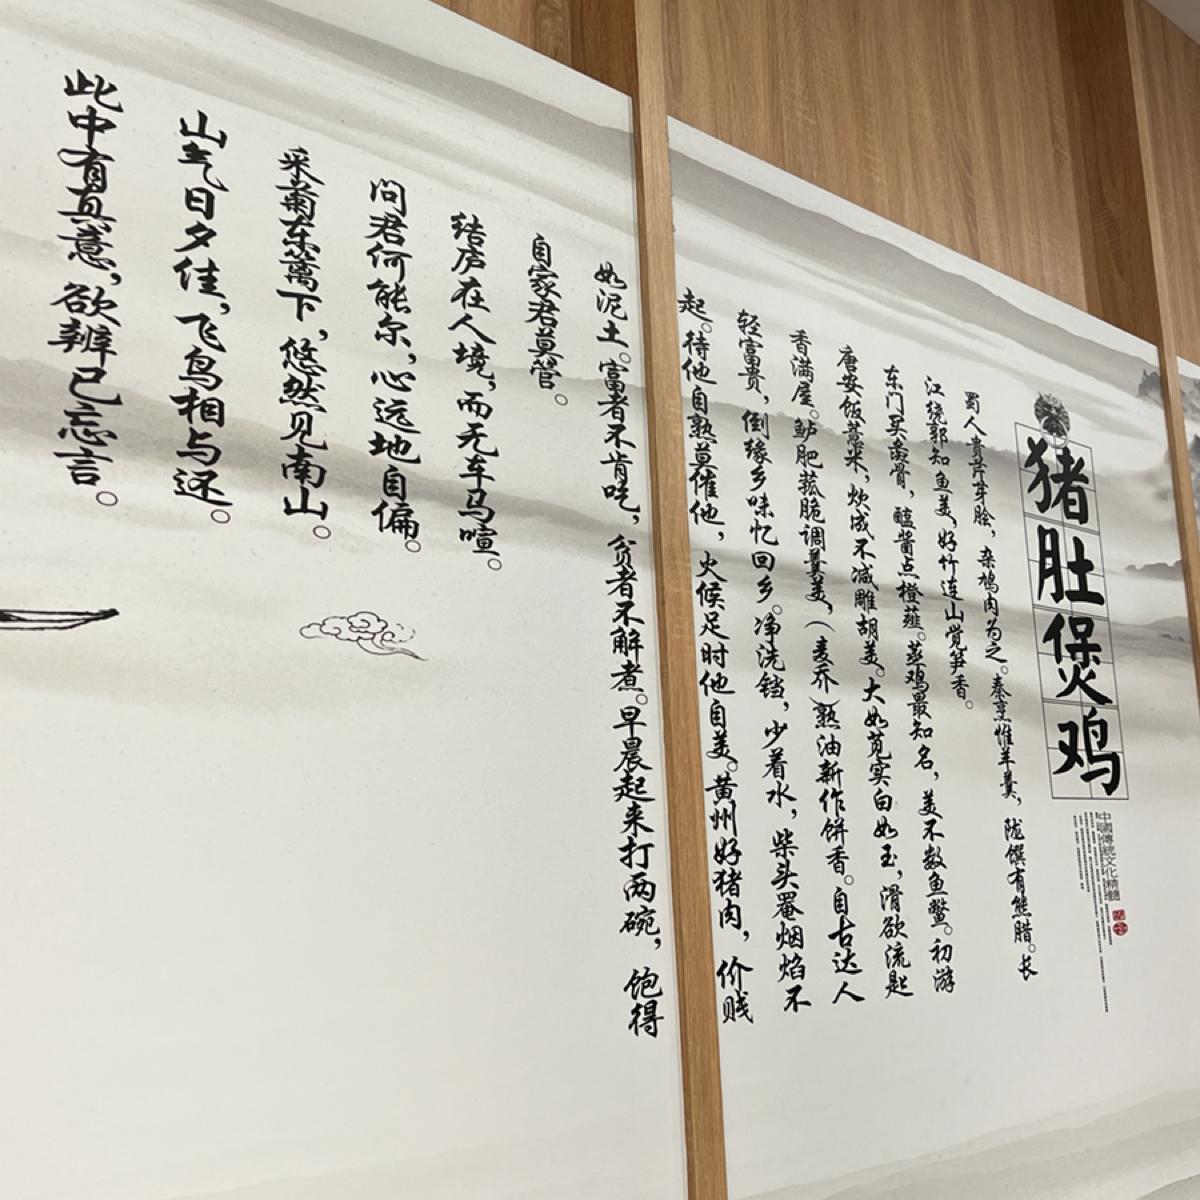 猪肚煲鸡
中國傳統文化精髓
蜀人贵芹芽脍，杂鸠肉为之。秦烹惟羊羹，陇馔有熊腊。长
江绕郭知鱼美，好竹连山觉笋香。
东门买彘骨，醯酱点橙薤。蒸鸡最知名，美不数鱼鳖。初游
唐安饭薏米，炊成不减雕胡美。大如苋实白如玉，滑欲流匙
香满屋。鲈肥菰脆调羹美，（麦乔）熟油新作饼香。自古达人
轻富贵，倒缘乡味忆回乡。净洗铛，少着水，柴头罨烟焰不
起。待他自熟莫催他，火候足时他自美。黄州好猪肉，价贱
如泥土。富者不肯吃，贫者不解煮。早晨起来打两碗，饱得
自家君莫管。
结庐在人境，而无车马喧。
问君何能尔，心远地自偏。
采菊东篱下，悠然见南山。
山气日夕佳，飞鸟相与还。
此中有真意，欲辨已忘言。